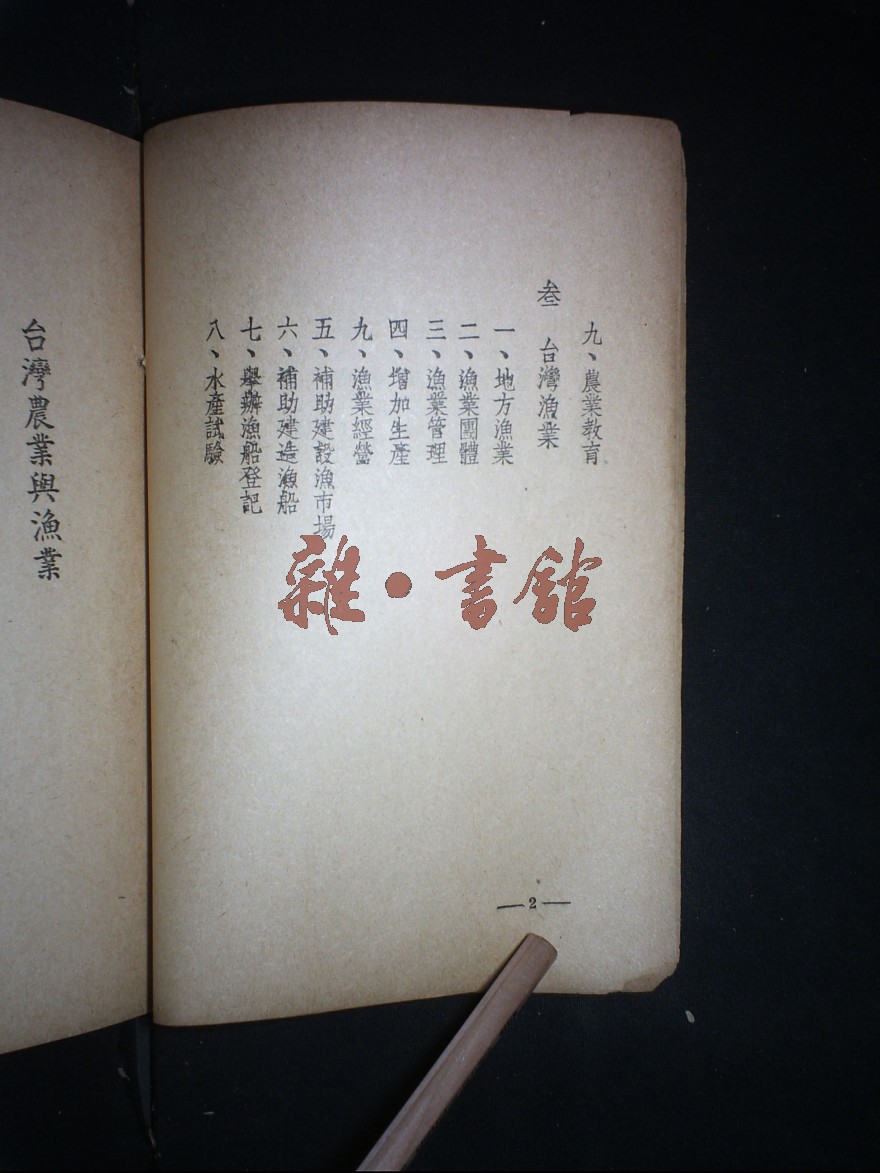 九、農業教育
叁 台灣漁業
一、地方漁業
二、漁業團體
三、漁業管理
四、增加生產
九、漁業經營
五、補助建設漁市場
六、補助建造漁船
七、舉辦漁船登記
八、水產試驗
—2—
雜·書館
台灣農業與漁業